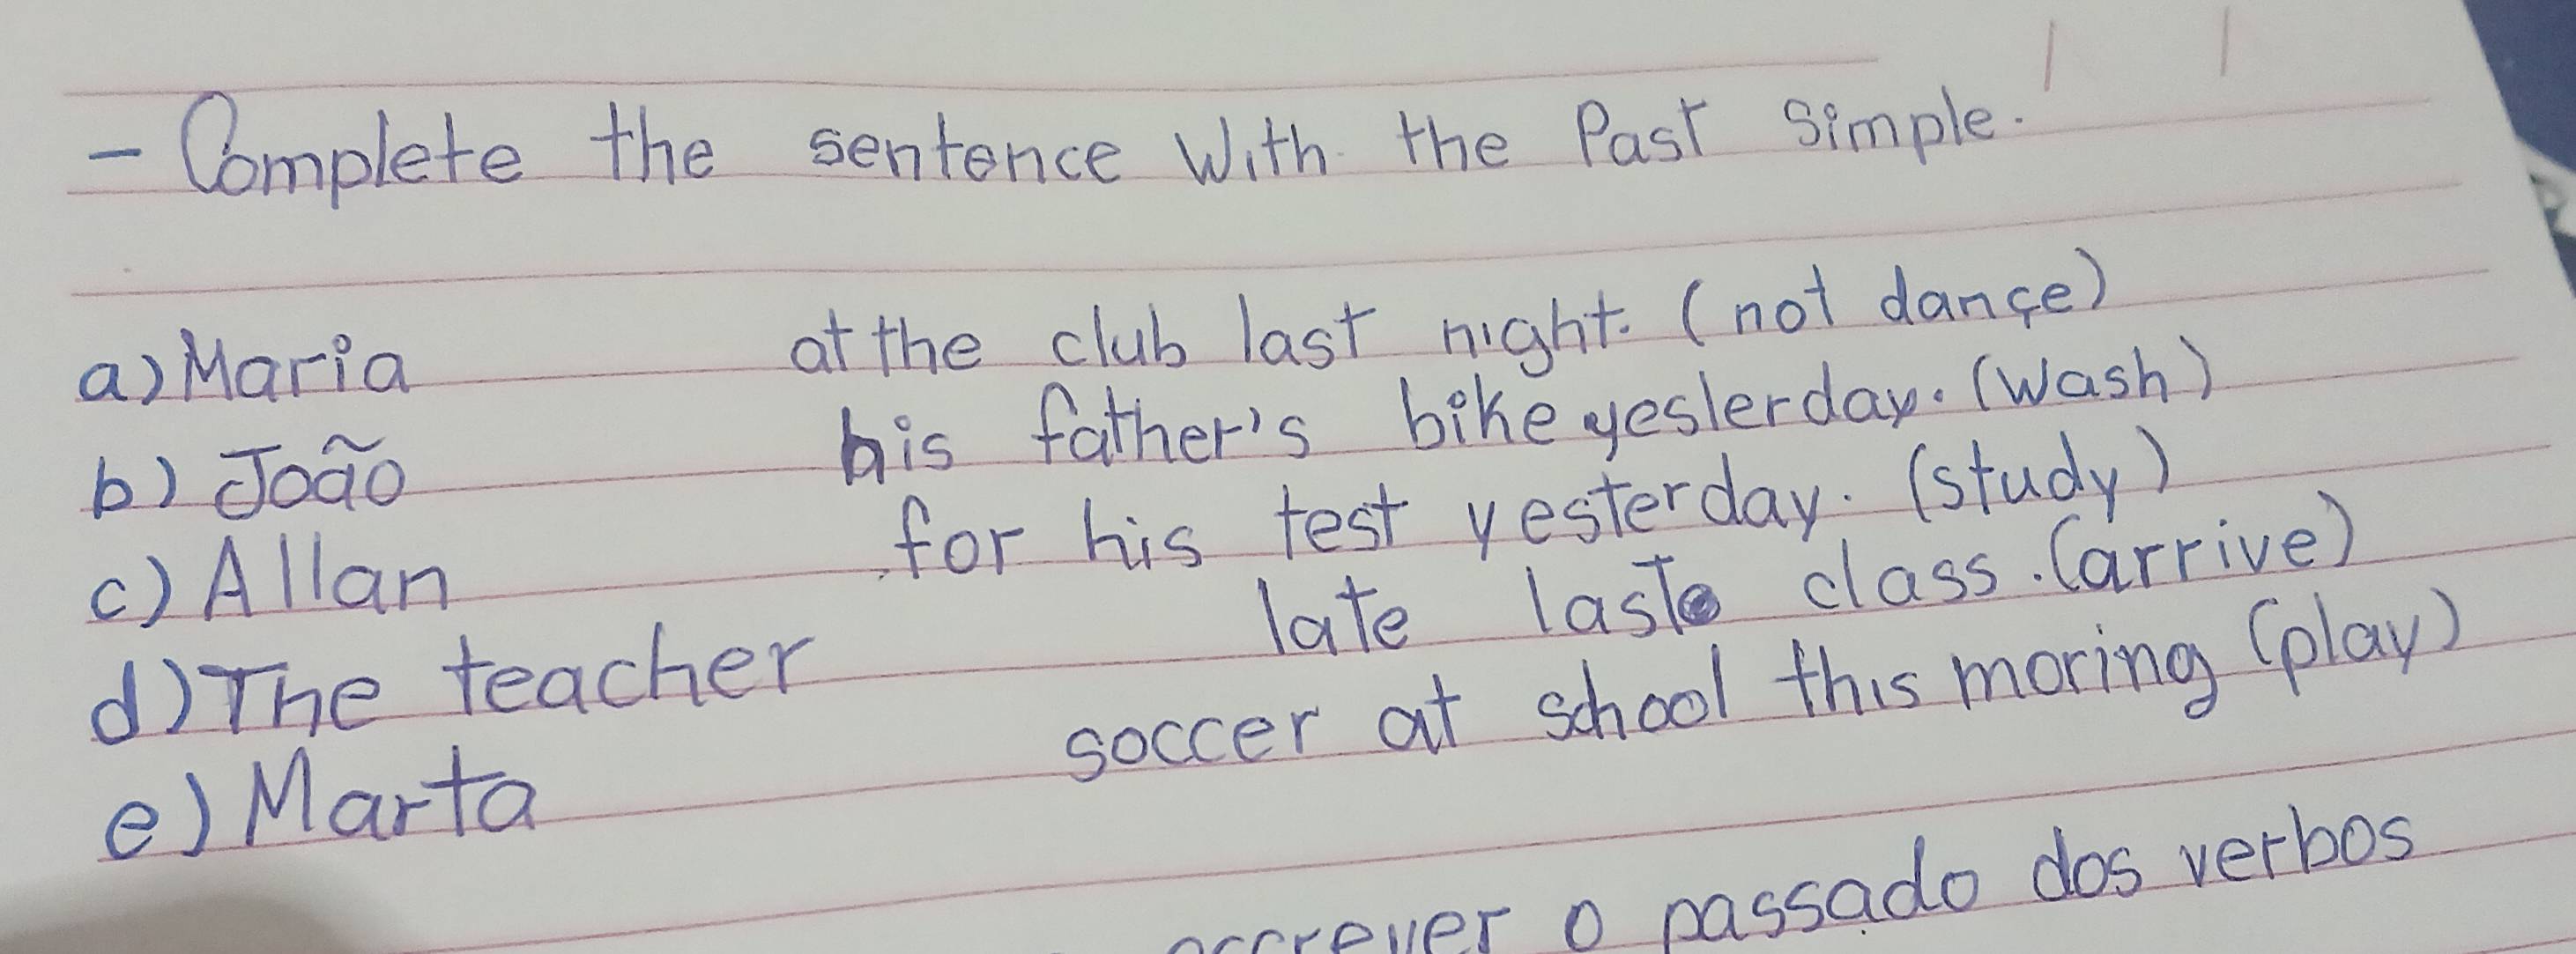 - Complete the sentence with the Past Simple.
a) Maria at the club last night. (not dançe)
b) João his father's bike yeslerday. (wash)
c) Allan for his test yesterday. (study)
d) The teacher late last class. (arrive)
e) Marta soccer at school this moring (play)
o passado dos verbos